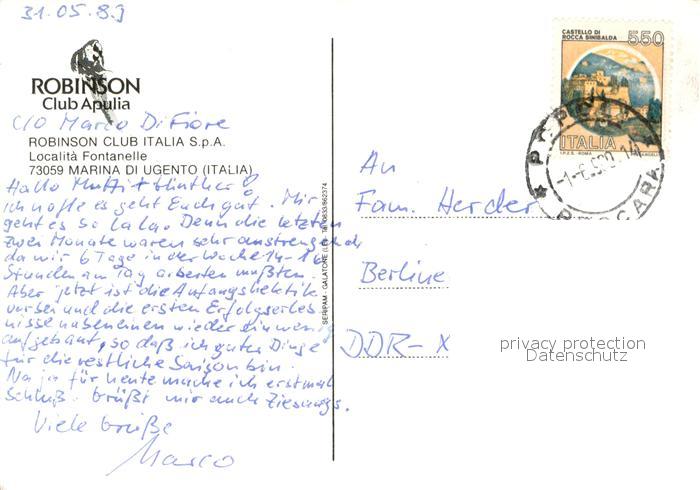 31.05.83
ROBINSON
Club Apulia
c/o Marco Di Fiore
ROBINSON CLUB ITALIA S.p.A.
Località Fontanelle
73059 MARINA DI UGENTO (ITALIA)
Hallo Mutti +
ich hoffe es geht Euch gut. Mir
geht es so lala. Denn die letzten
zwei Monate waren sehr anstrengend
da wir 6 Tage in der Woche 14-16
Stunden am Tag arbeiten mußten.
Aber jetzt ist die Anfangshektik
vorbei und die ersten Erfolgserleb
nisse haben einen wieder ein wenig
aufgebaut, so daß ich guter Dinge
für die restliche Saison bin.
Na ja für heute mache ich erstmal
Schluß. Grüßt mir auch
Viele Grüße
Marco
CASTELLO DI
ROCCA SINIBALDA
550
ITALIA
I.P.Z.S. ROMA
An
Fam. Herder
Berline
DDR- X
privacy protection
Datenschutz